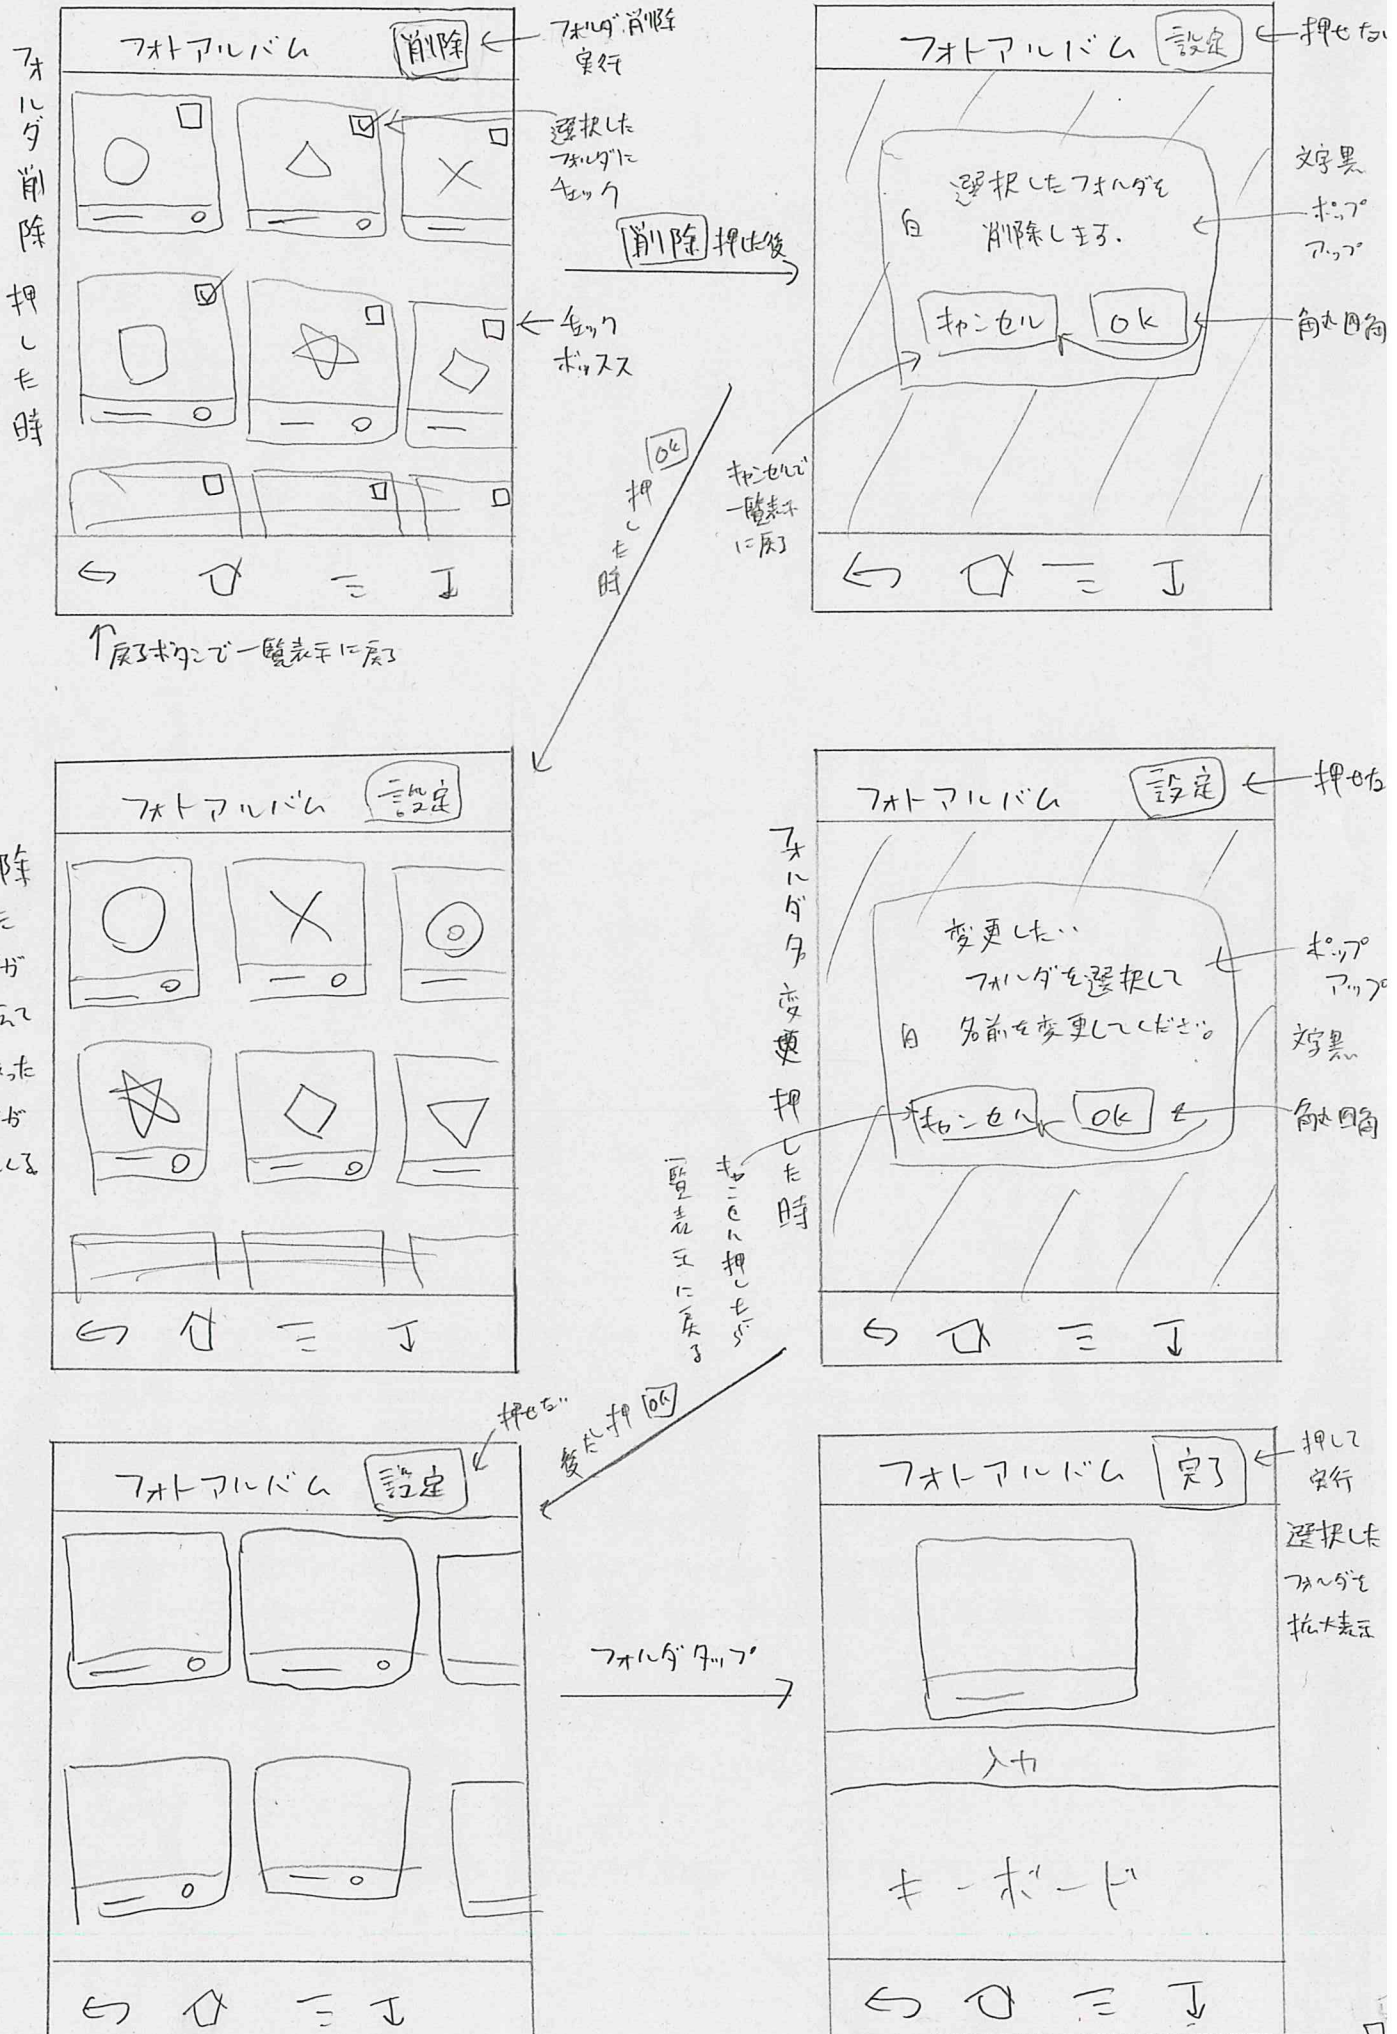 フォルダ削除 押した時
フォトアルバム 削除
フォルダ削除
実行
選択した
フォルダに
チェック
チェック
ボックス
↑戻るボタンで一覧表示に戻る
削除 押した後
フォトアルバム 設定
押せない
選択したフォルダを
削除します.
白
キャンセル OK
文字黒
ポップ
アップ
角丸四角
キャンセルで
一覧表示
に戻る
OK 押した時
フォトアルバム 設定
除
た
が
えて
った
が
くる
フォルダ名変更 押した時
フォトアルバム 設定
押せな
変更したい
フォルダを選択して
名前を変更してください。
白
キャンセル OK
ポップ
アップ
文字黒
角丸四角
キャンセル押したら
一覧表示に戻る
OK 押した後
フォトアルバム 設定
押せない
フォルダタップ
フォトアルバム 完了
押して
実行
選択した
フォルダを
拡大表示
入力
キーボード